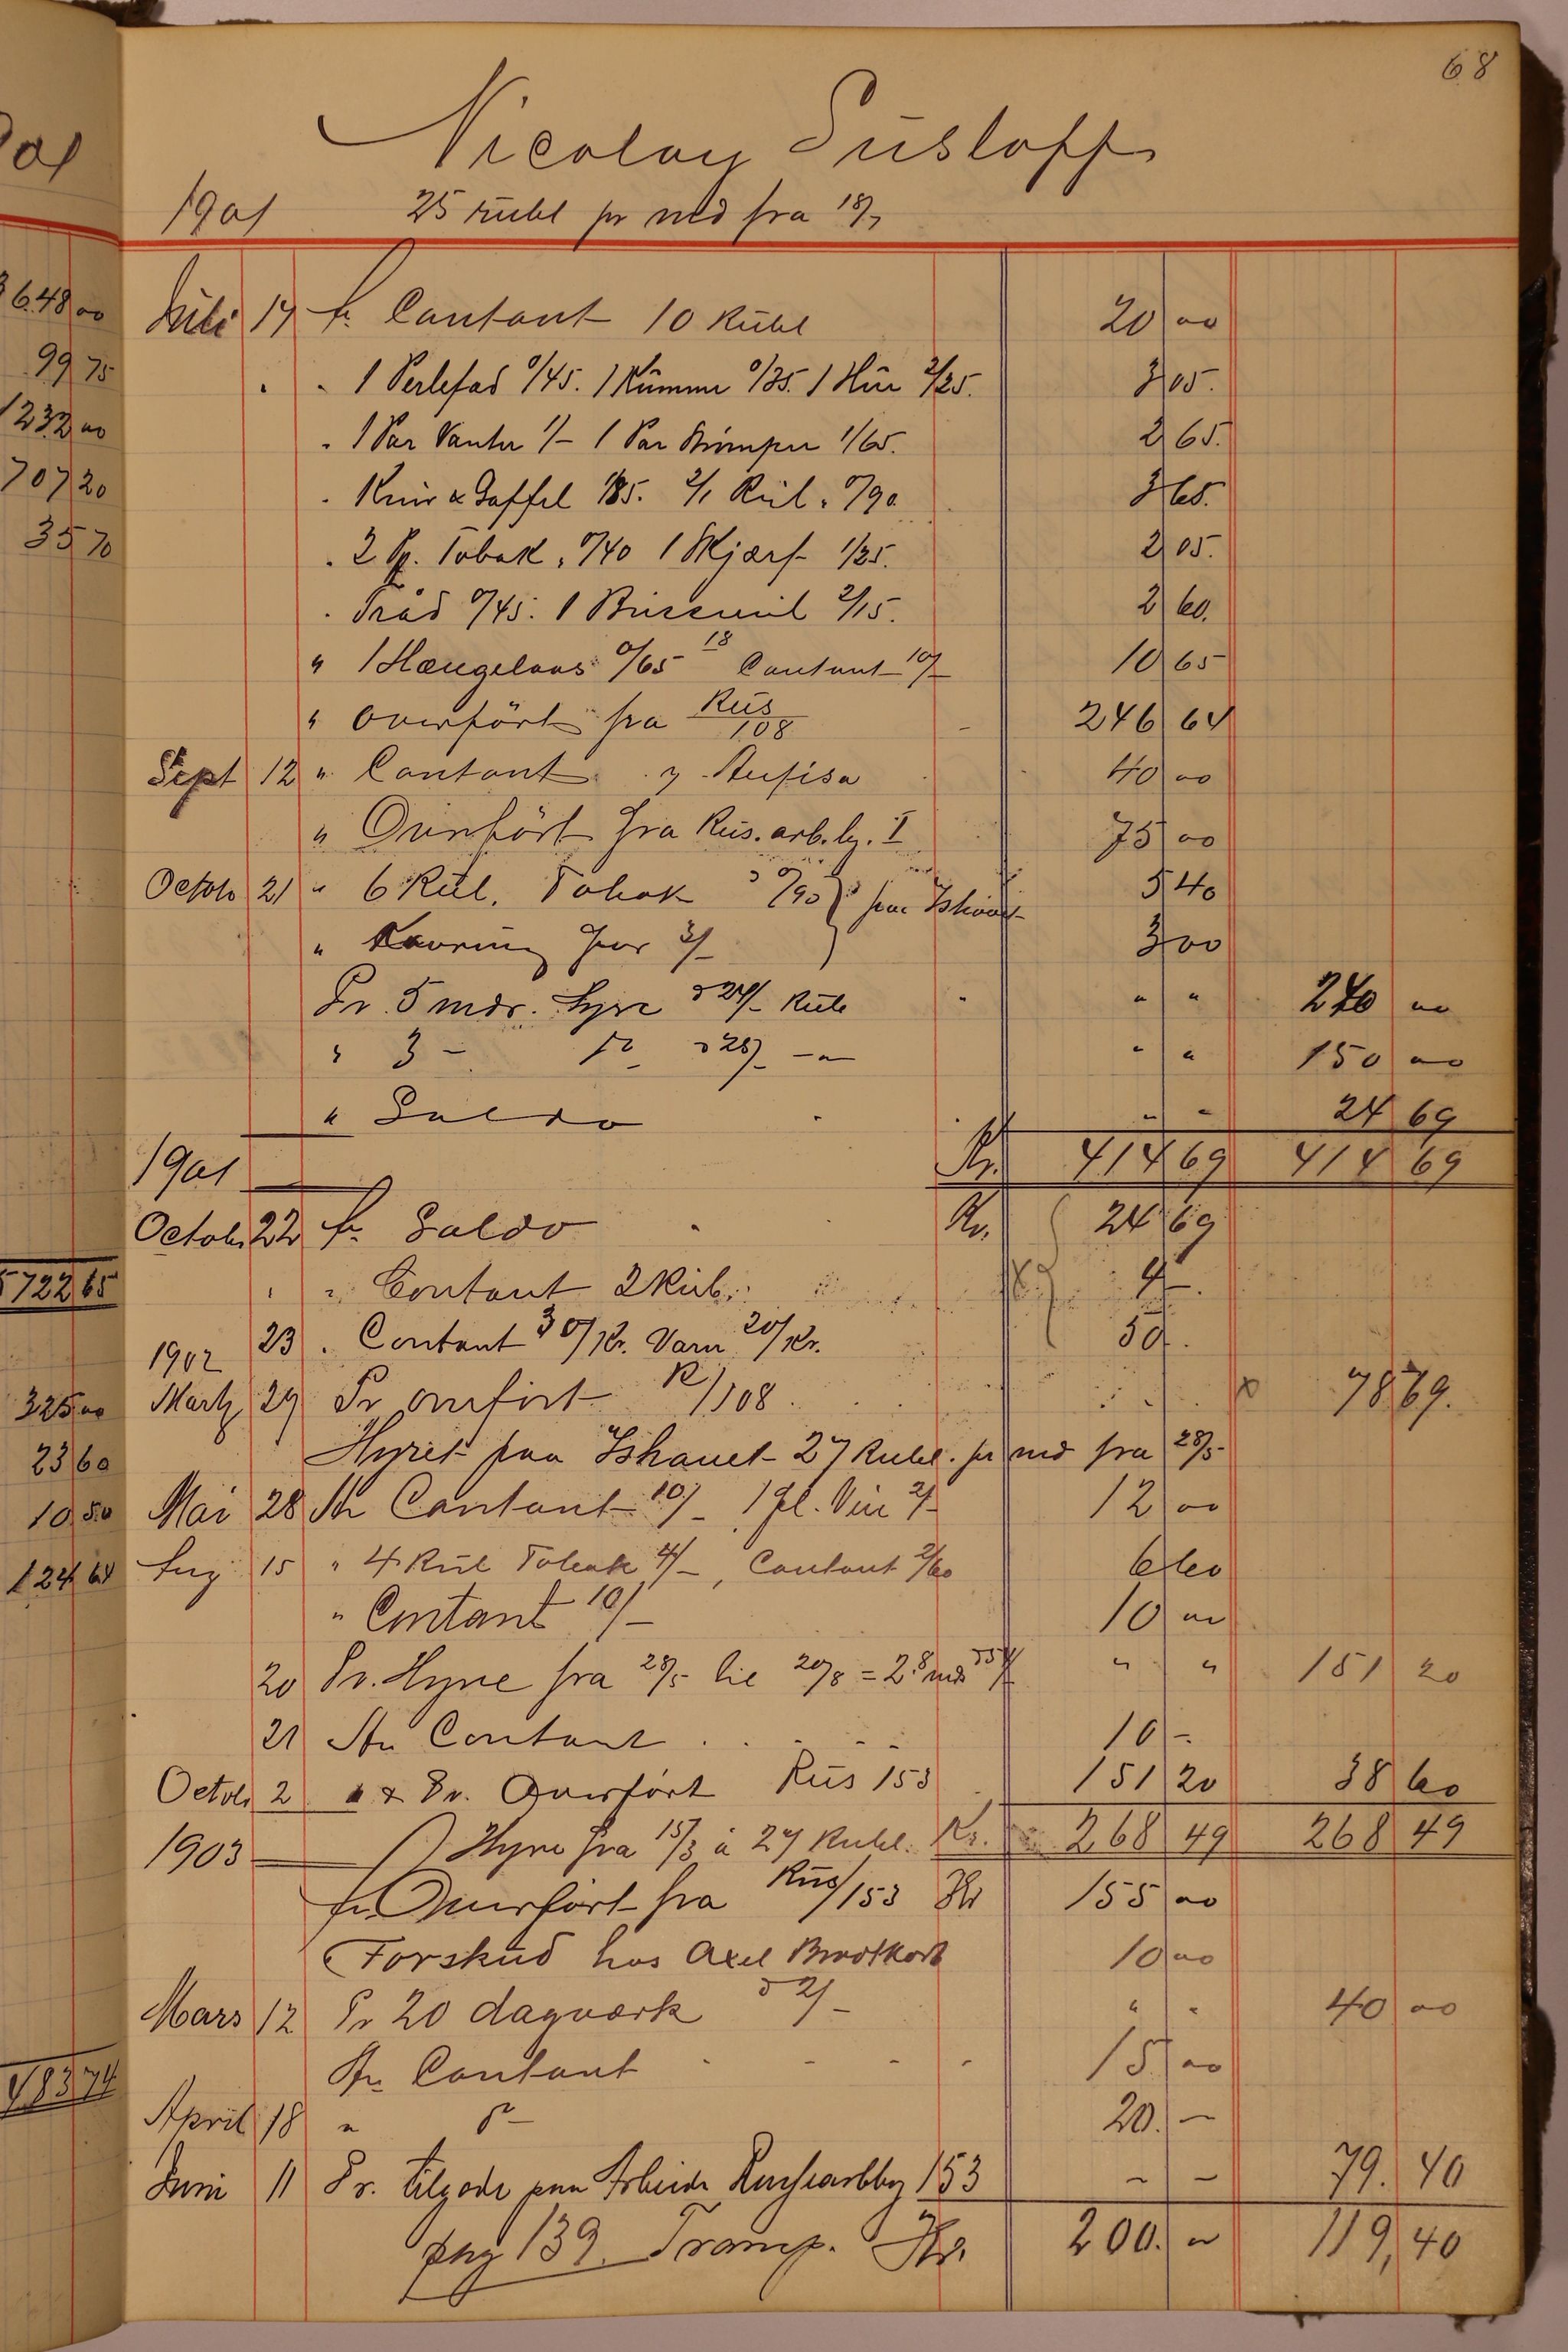 68
Nicolay Susloff
1901 25 rubl pr md fra 18/7
Juli 17 An Contant 10 Rubl 20 00
" " 1 Perlefad 0/45. 1 Kumme 0/35. 1 Hue 2/25. 3 05.
" 1 Par Vanter 1/- 1 Par Strømper 1/65. 2 65.
" Kniv & Gaffel 1/85. 2/1 Rul. 0/90. 3 65.
" 2 Pk. Tobak " 0/40 1 Skjærf 1/25. 2 05.
" Tråd 0/45. 1 2/15. 2 60.
" 1 Hængelaas 0/65 18 Contant 10/- 10 65
" overført fra Rus/108 246 64
Sept 12 " Contant 40 00
" Overført fra Rus. arb. bg. I 75 00
Octob 21 " 6 Rul. Tobak à 0/90 } paa Ishavet 5 40
" for 3/- 3 00
Pr 5 mdr. Hyre à 24/- Rub " " 240 00
" 3 - do à 25/- - " - " " 150 00
" Saldo " " 24 69
1901 Kr. 414 69 414 69
Octob 22 An Saldo Kr. 24 69
" " Contant 2 Rub. 4 -.
23 " Contant 30/Kr. Varer 20/Kr. 50 -.
1902
Marts 29 Pr overført R/108 x 78 69.
Hyret paa Ishavet 27 Rubl. pr md fra 28/5
Mai 28 An Contant 10/- 1 fl. Vin 2/- 12 00
Aug 15 " 4 Rul Tobak 4/-, Contant 2/60 6 60
" Contant 10/- 10 00
20 Pr. Hyre fra 28/5 til 20/8 = 2.8 md à 54/- " " 151 20
21 An Contant 10 -
Octob 2 " & Pr. Overført Rus 153 151 20 38 60
Kr. 268 49 268 49
1903 Hyre fra 15/3 à 27 Rubl.
An Overført fra Rus/153 Kr 155 00
Forskud hos Axel Brodtkorb 10 00
Mars 12 Pr 20 dagværk à 2/- " " 40 00
An Contant 15 00
April 18 " do 20. -
Juni 11 Pr. tilgode paa Arbeide 153 - - 79. 40
pag 139. Transp. Kr. 200. 00 119, 40
648 00
99 75
1232 00
707 20
35 70
5722 65
325 00
23 60
10 50
124 64
483 74